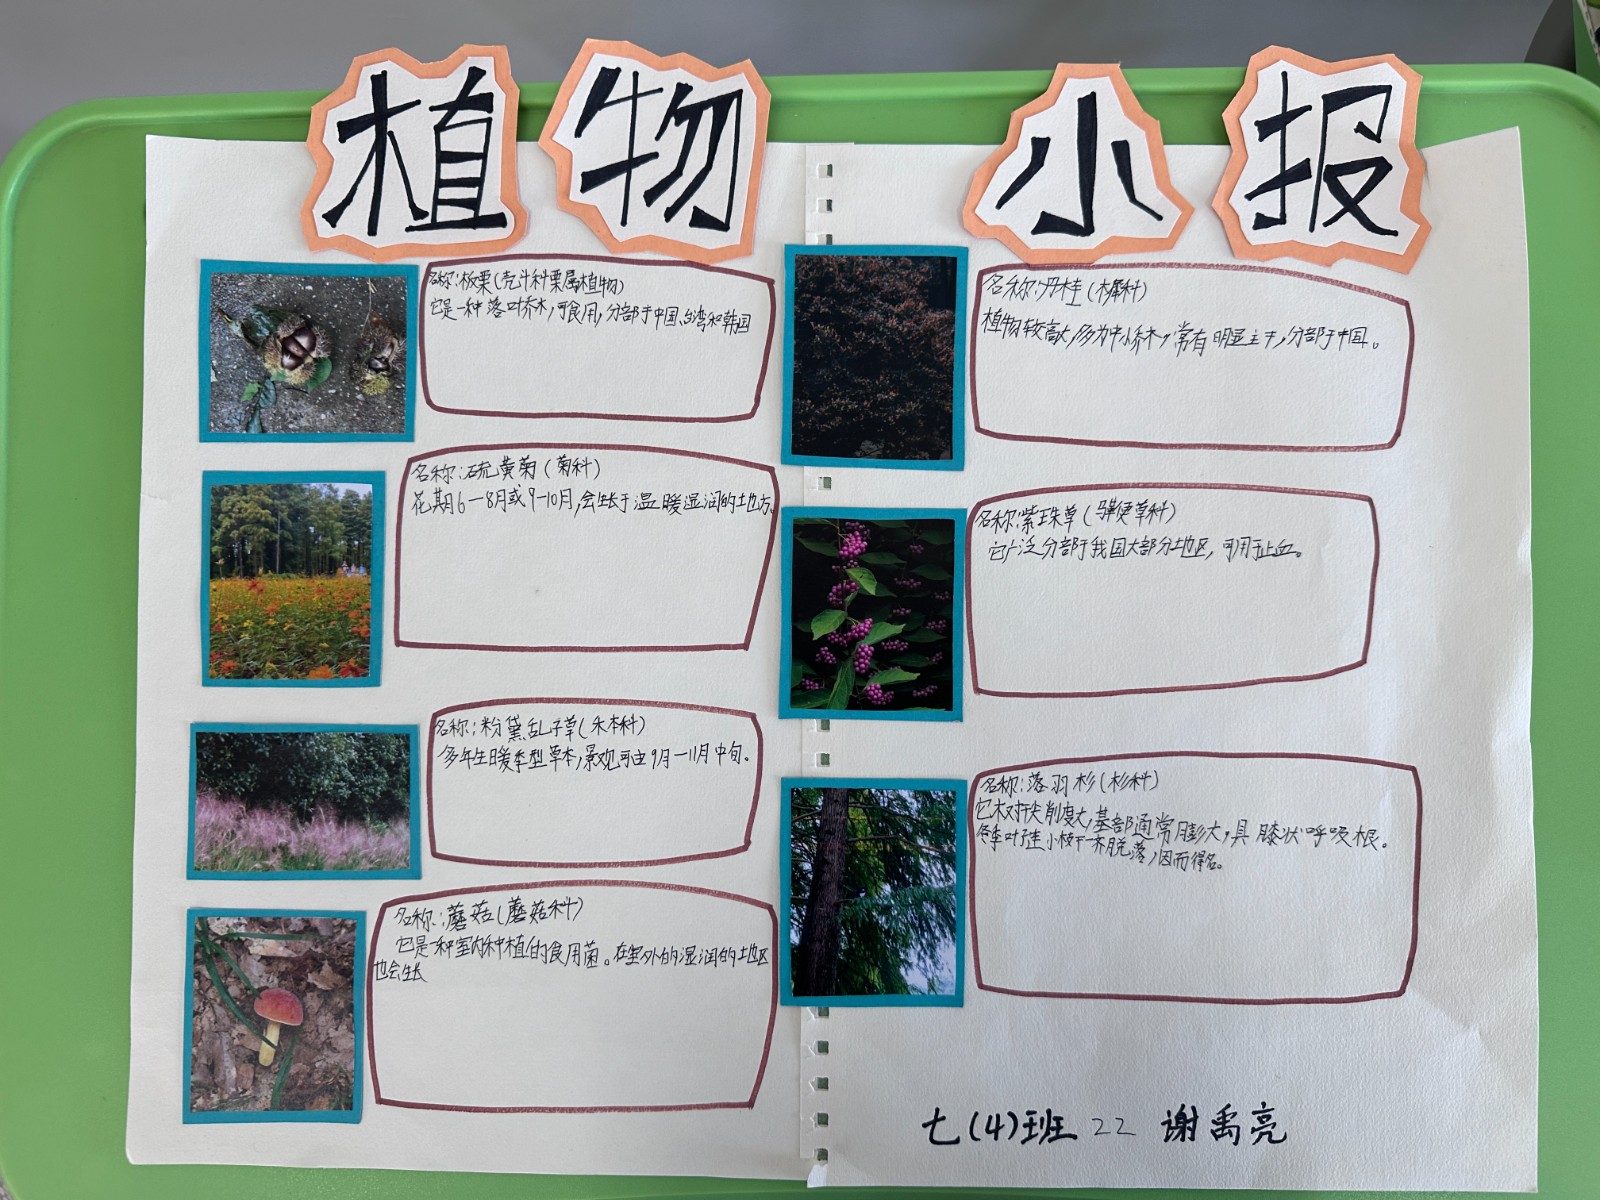 植物小报
名称:板栗(壳斗科栗属植物)
它是一种落叶乔木,可食用,分部于中国、台湾和韩国
名称:硫黄菊(菊科)
花期6—8月或9-10月,会生长于温暖湿润的土地方。
名称:粉黛乱子草(禾本科)
多年生暖季型草本,景观可由9月—11月中旬。
名称:蘑菇(蘑菇科)
它是一种室内种植的食用菌。在室外的湿润的土地区
也会生长
名称:丹桂(木犀科)
植物较高大,多为中小乔木,常有明显主干,分部于中国。
名称:紫珠草(马鞭草科)
它广泛分部于我国大部分土地区,可用于止血。
名称:落羽杉(杉科)
它树干尖削度大,基部通常膨大,具膝状呼吸根。
冬季叶连小枝一齐脱落,因而得名。
七(4)班 22 谢禹亮